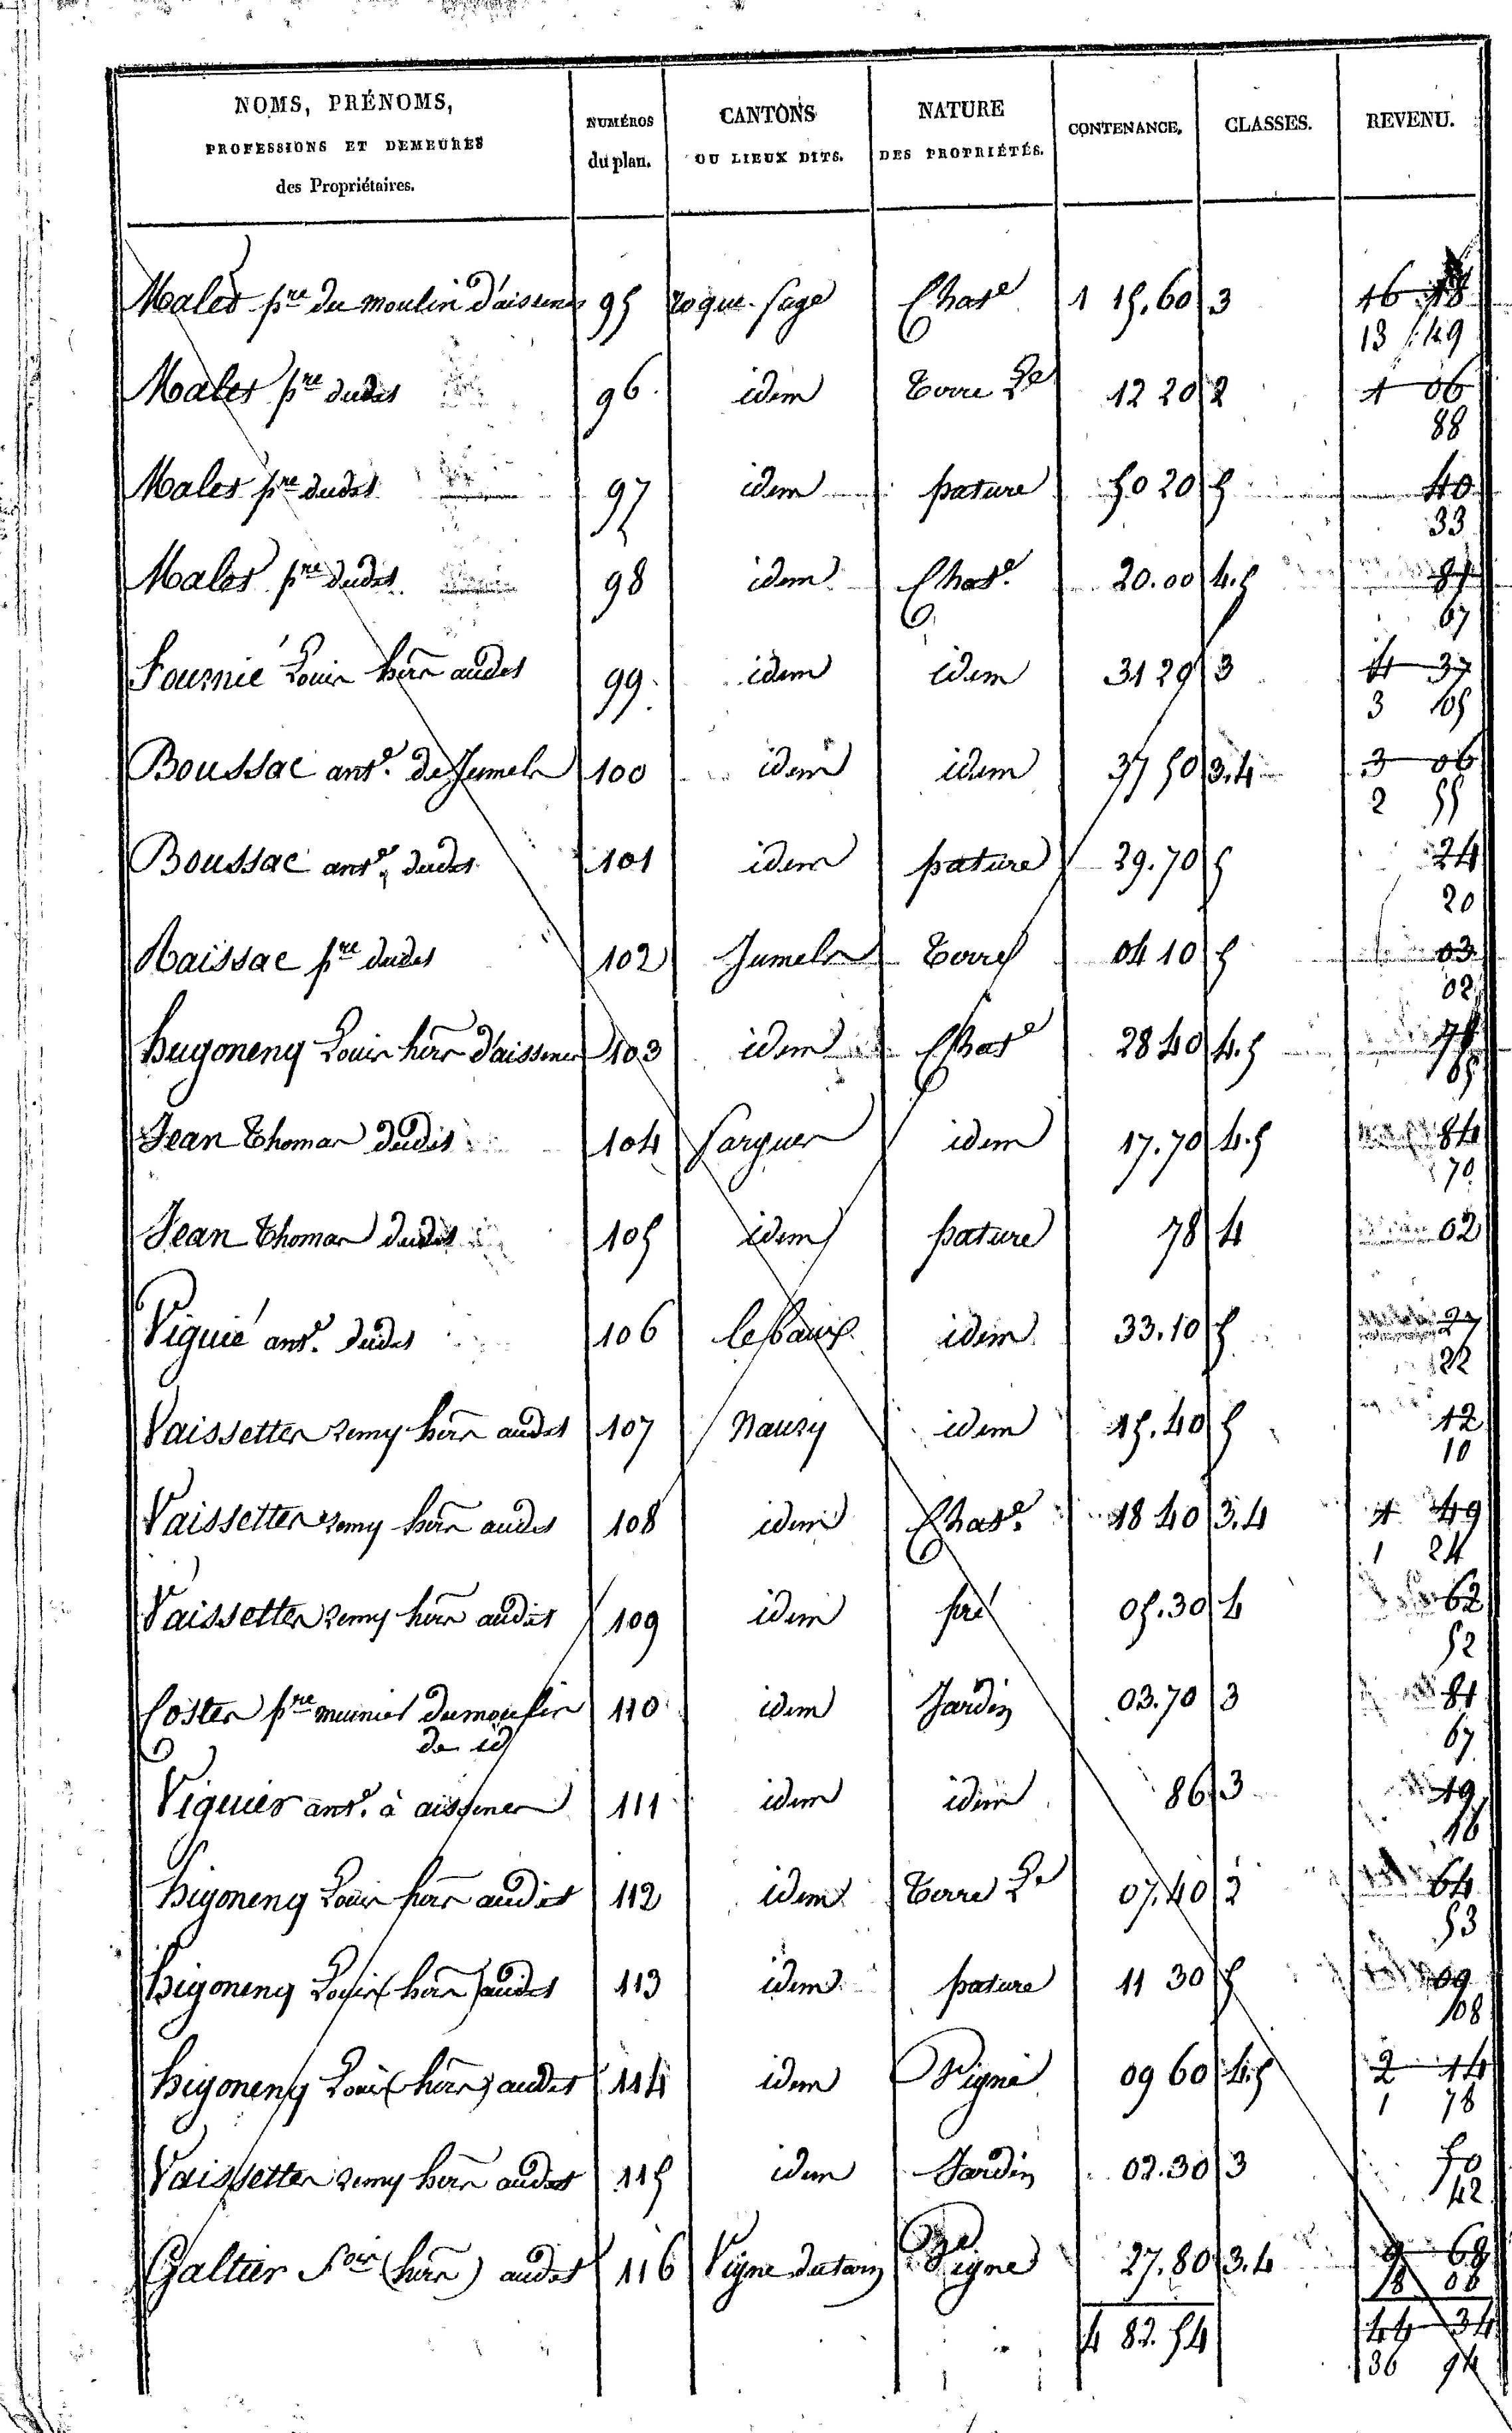 NOMS, PRÉNOMS, PROFESSIONS ET DEMEURES des Propriétaires. | NUMÉROS du plan. | CANTONS OU LIEUX DITS. | NATURE DES PROPRIÉTÉS. | CONTENANCE. | CLASSES. | REVENU.
Males pre du moulin d'aissenes 95 roque-sage Chate 1 15.60 3 16 18
13 49
Males pre dudit 96 idem terre 2e 12 20 2 1 06
88
Males pre dudit 97 idem pature 50 20 5 40
33
Males pre dudit 98 idem Chate 20.00 4.5 81
67
Fournié Louis hérs audit 99 idem idem 31 20 3 4 37
3 65
Boussac ante de Jumels 100 idem idem 37 50 3.4 3 06
2 55
Boussac ante dudit 101 idem pature 29.70 5 24
20
Raissac pre dudit 102 Jumels terre 04 10 5 03
02
hugoneng Louis hérs d'aissenes 103 idem Chate 28 40 4.5 78
65
Jean Thomas dudit 104 Sarguer idem 17.70 4.5 84
70
Jean Thomas dudit 105 idem pature 78 4 02
Viguié ante dudit 106 idem 33.10 5 27
22
Vaissettes remy hérs audit 107 Nauzy idem 15.40 5 12
10
Vaissettes remy hérs audit 108 idem Chate 18 40 3.4 1 49
1 24
Vaissettes remy hérs audit 109 idem pré 05.30 4 62
52
Costes pre meunier du moulin 110 idem Jardin 03.70 3 81
de id 67
Viguier ante à aissenes 111 idem idem 86 3 19
16
higoneng Louis hérs audit 112 idem terre 2e 07.40 2 64
53
higoneng Louis (hérs) audit 113 idem pature 11 30 5 09
08
higoneng Louis (hérs) audit 114 idem Vigne 09 60 4.5 2 14
1 78
Vaissettes remy hérs audit 115 idem Jardin 02.30 3 50
42
Galtier (hérs) audit 116 Vigne du tarn Vigne 27.80 3.4 9 68
8 06
4 82.54 44 34
36 94